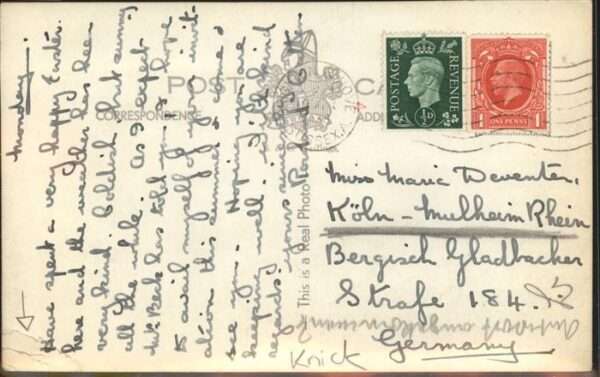 Monday.
Have spent a very happy Easter
here and the weather has been
very kind. Coldish but sunny
all the while. As I expect
Mrs Beck has told you, I hope
to avail myself of your invit-
ation this summer & come &
see you. Hoping you are
keeping well. With kind
regards, yours sincerely
POST CA
CORRESPONDENCE ADD
This is a Real Photo
POSTAGE REVENUE
½D
1 ONE PENNY 1
Miss Marie Deventer,
Köln-Mulheim Rhein
Bergisch Gladbacher
Straße 184.
Germany
Knick